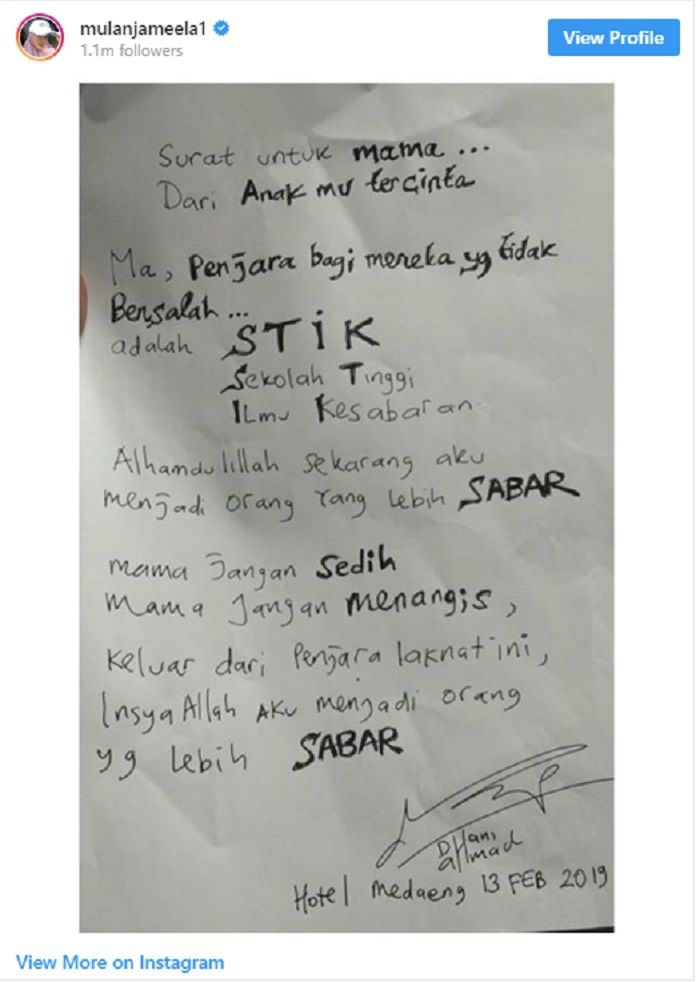 mulanjameela1
1.1m followers
View Profile
Surat untuk mama ...
Dari Anak mu tercinta
Ma, Penjara bagi mereka yg tidak
Bersalah ...
adalah STIK
Sekolah Tinggi
ILmu Kesabaran
Alhamdulillah sekarang aku
menjadi orang yang lebih SABAR
mama jangan sedih
mama jangan menangis,
keluar dari Penjara laknat ini,
InsyaAllah AKU menjadi orang
yg lebih SABAR
DHani
aHmad
Hotel medaeng 13 FEB 2019
View More on Instagram